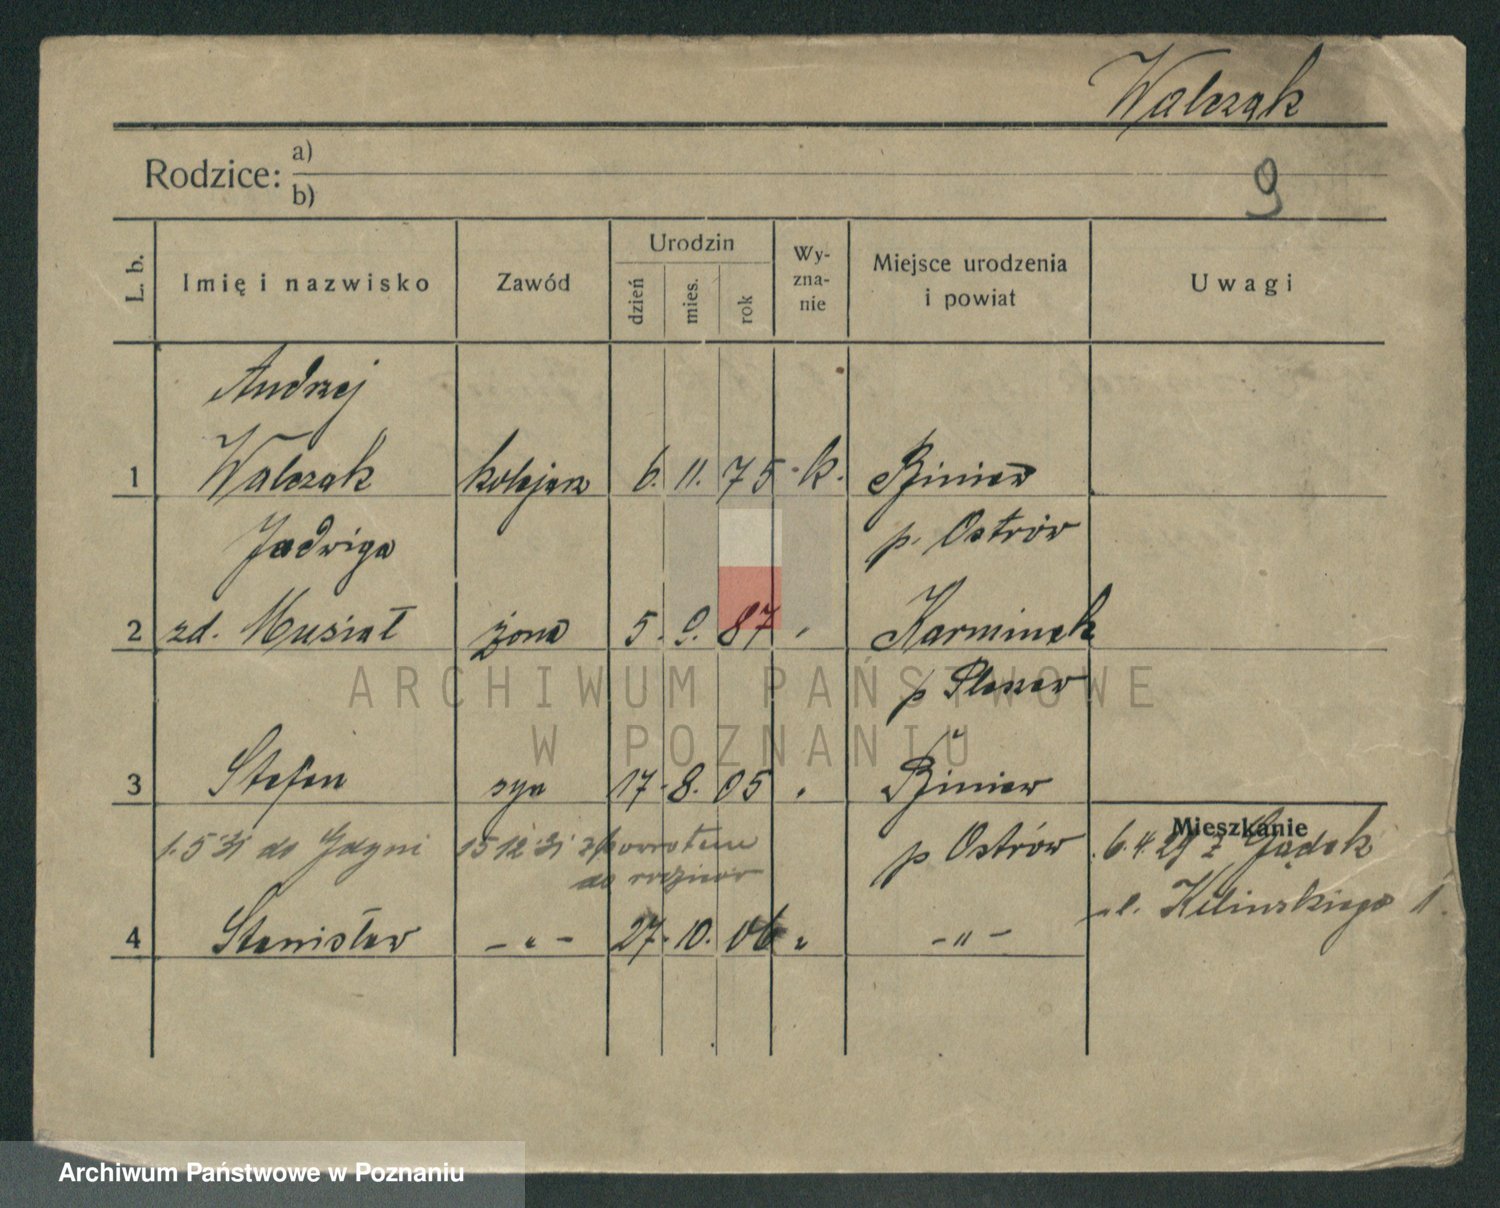 Walczak
Rodzice: a)
b)
9
L. b.
Imię i nazwisko
Zawód
Urodzin
dzień
mies.
rok
Wy-
zna-
nie
Miejsce urodzenia
i powiat
Uwagi
Andrzej
1 Walczak kolejarz 6. 11. 75 k. Biniew
Jadwiga p. Ostrów
2 zd. Musiał żona 5. 9. 87 " Karminek
p Pleszew
3 Stefan syn 17. 8. 05 " Biniew
Mieszkanie
1.5 31 do Gdyni 15 12 31 z powrotem p Ostrów 6.4.29 z Gądek
do rodziców ul. Kilińskiego 1.
4 Stanisław - " - 27. 10. 06 " - " -
ARCHIWUM PAŃSTWOWE
W POZNANIU
Archiwum Państwowe w Poznaniu